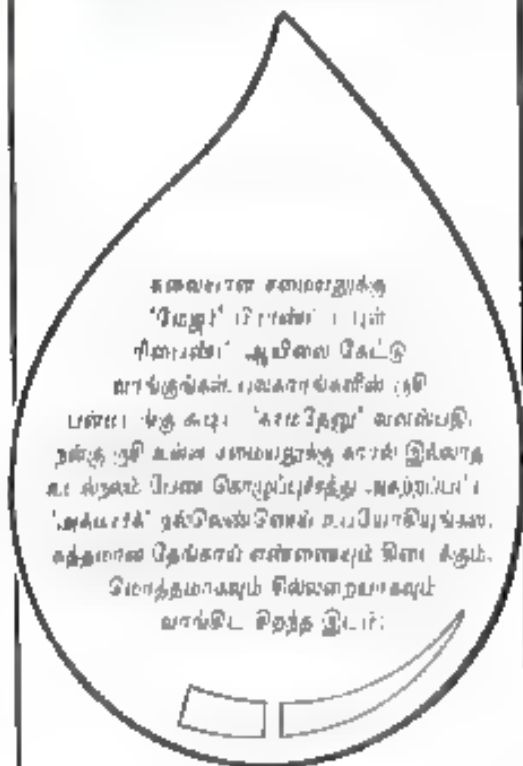 சுவையான சமையலுக்கு
'மேஜர்' பிராண்ட்
ரீபைண்ட் ஆயிலை கேட்டு
வாங்குங்கள். பலகாரங்களின் ருசி
'காமதேனு' வனஸ்பதி.
நல்ல ருசி உள்ள சமையலுக்கு காரல் இல்லாத
உடல்நலம் பேண கொழுப்புச்சத்து அகற்றப்பட்ட
நல்லெண்ணெய் உபயோகியுங்கள்.
சுத்தமான தேங்காய் எண்ணையும் கிடைக்கும்.
மொத்தமாகவும் சில்லறையாகவும்
வாங்கிட சிறந்த இடம்: